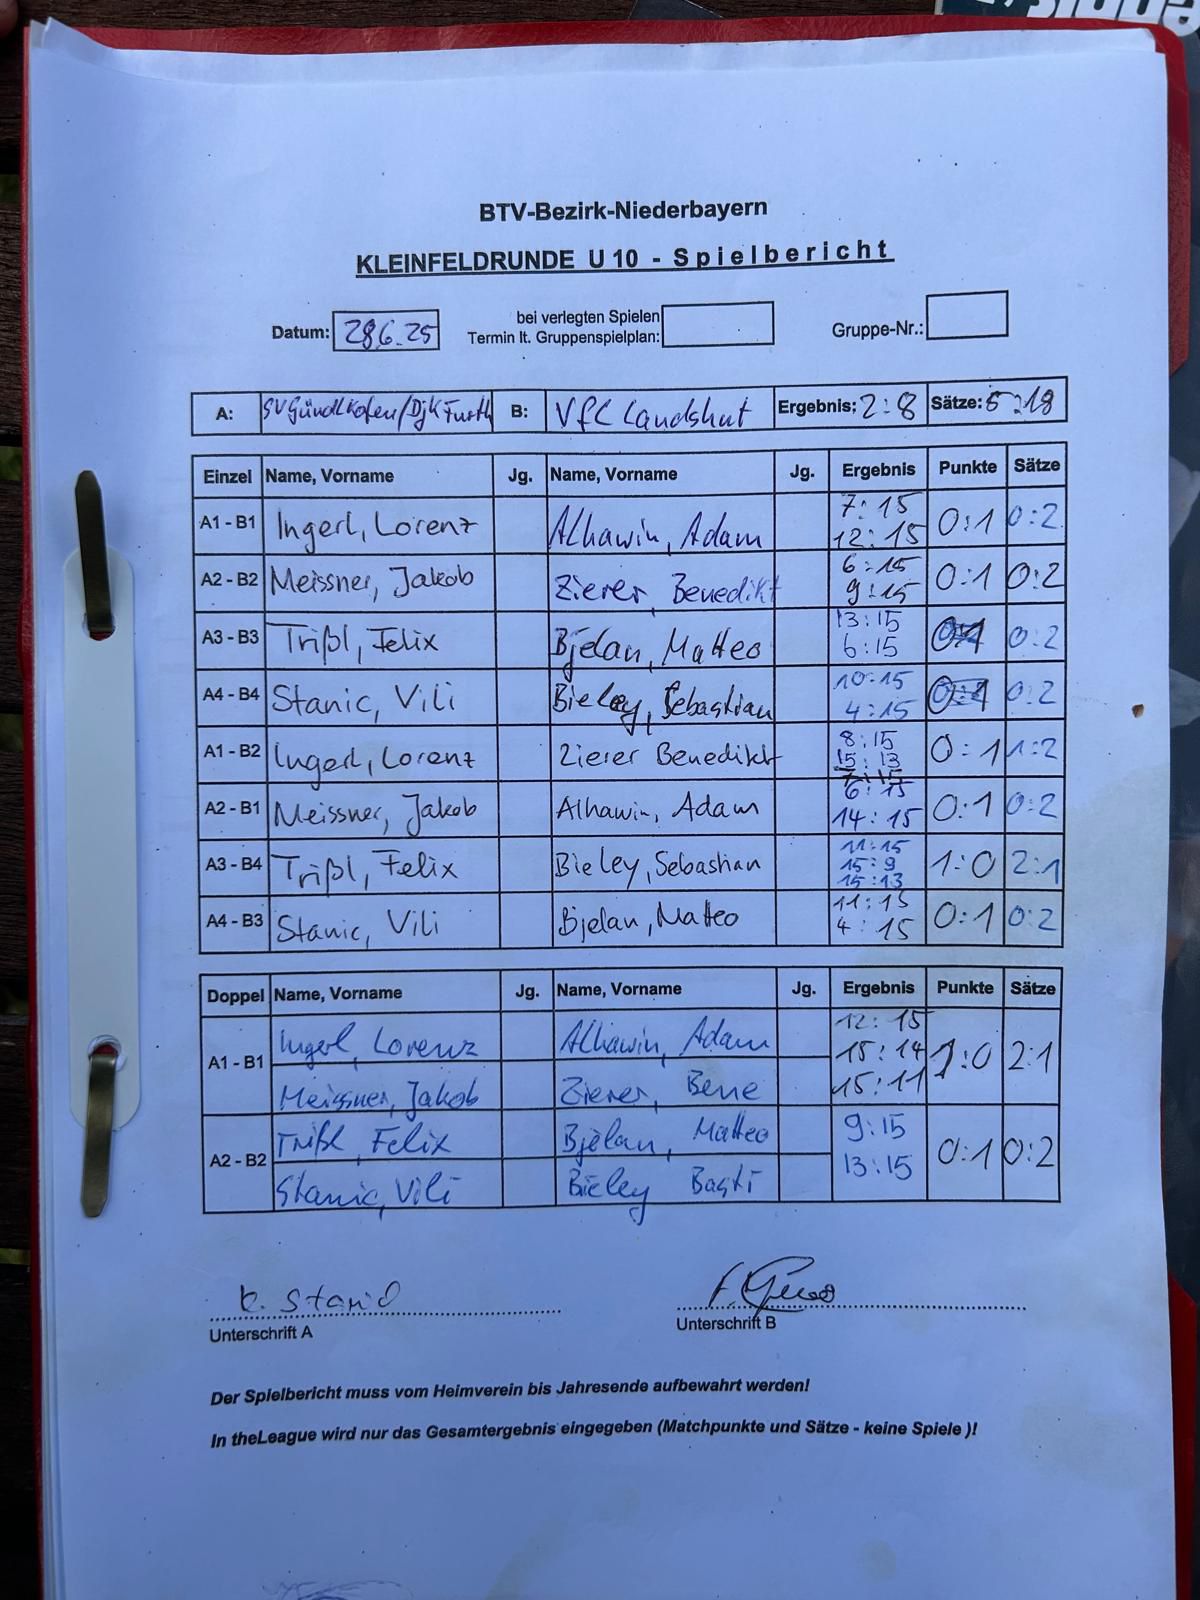 BTV-Bezirk-Niederbayern
KLEINFELDRUNDE U 10 - Spielbericht
Datum: 28.6.25 bei verlegten Spielen Termin lt. Gruppenspielplan: Gruppe-Nr.:
A: SV Gündlkofen/Djk Furth B: VfC Landshut Ergebnis: 2:8 Sätze: 5:18
Einzel Name, Vorname Jg. Name, Vorname Jg. Ergebnis Punkte Sätze
A1 - B1 Ingerl, Lorenz Alhawin, Adam 7:15 12:15 0:1 0:2
A2 - B2 Meissner, Jakob Zierer, Benedikt 6:15 9:15 0:1 0:2
A3 - B3 Trißl, Felix Bjelan, Matteo 13:15 6:15 0:1 0:2
A4 - B4 Stanic, Vili Bieley, Sebastian 10:15 4:15 0:1 0:2
A1 - B2 Ingerl, Lorenz Zierer Benedikt 8:15 15:13 7:15 0:1 1:2
A2 - B1 Meissner, Jakob Alhawin, Adam 6:15 14:15 0:1 0:2
A3 - B4 Trißl, Felix Bieley, Sebastian 11:15 15:9 15:13 1:0 2:1
A4 - B3 Stanic, Vili Bjelan, Matteo 11:15 4:15 0:1 0:2
Doppel Name, Vorname Jg. Name, Vorname Jg. Ergebnis Punkte Sätze
A1 - B1 Ingerl, Lorenz Alhawin, Adam 12:15 15:14 15:11 1:0 2:1
Meissner, Jakob Zierer, Bene
A2 - B2 Trißl, Felix Bjelan, Matteo 9:15 13:15 0:1 0:2
Stanic, Vili Bieley Basti
K. Stanic
Unterschrift A Unterschrift B
Der Spielbericht muss vom Heimverein bis Jahresende aufbewahrt werden!
In theLeague wird nur das Gesamtergebnis eingegeben (Matchpunkte und Sätze - keine Spiele )!